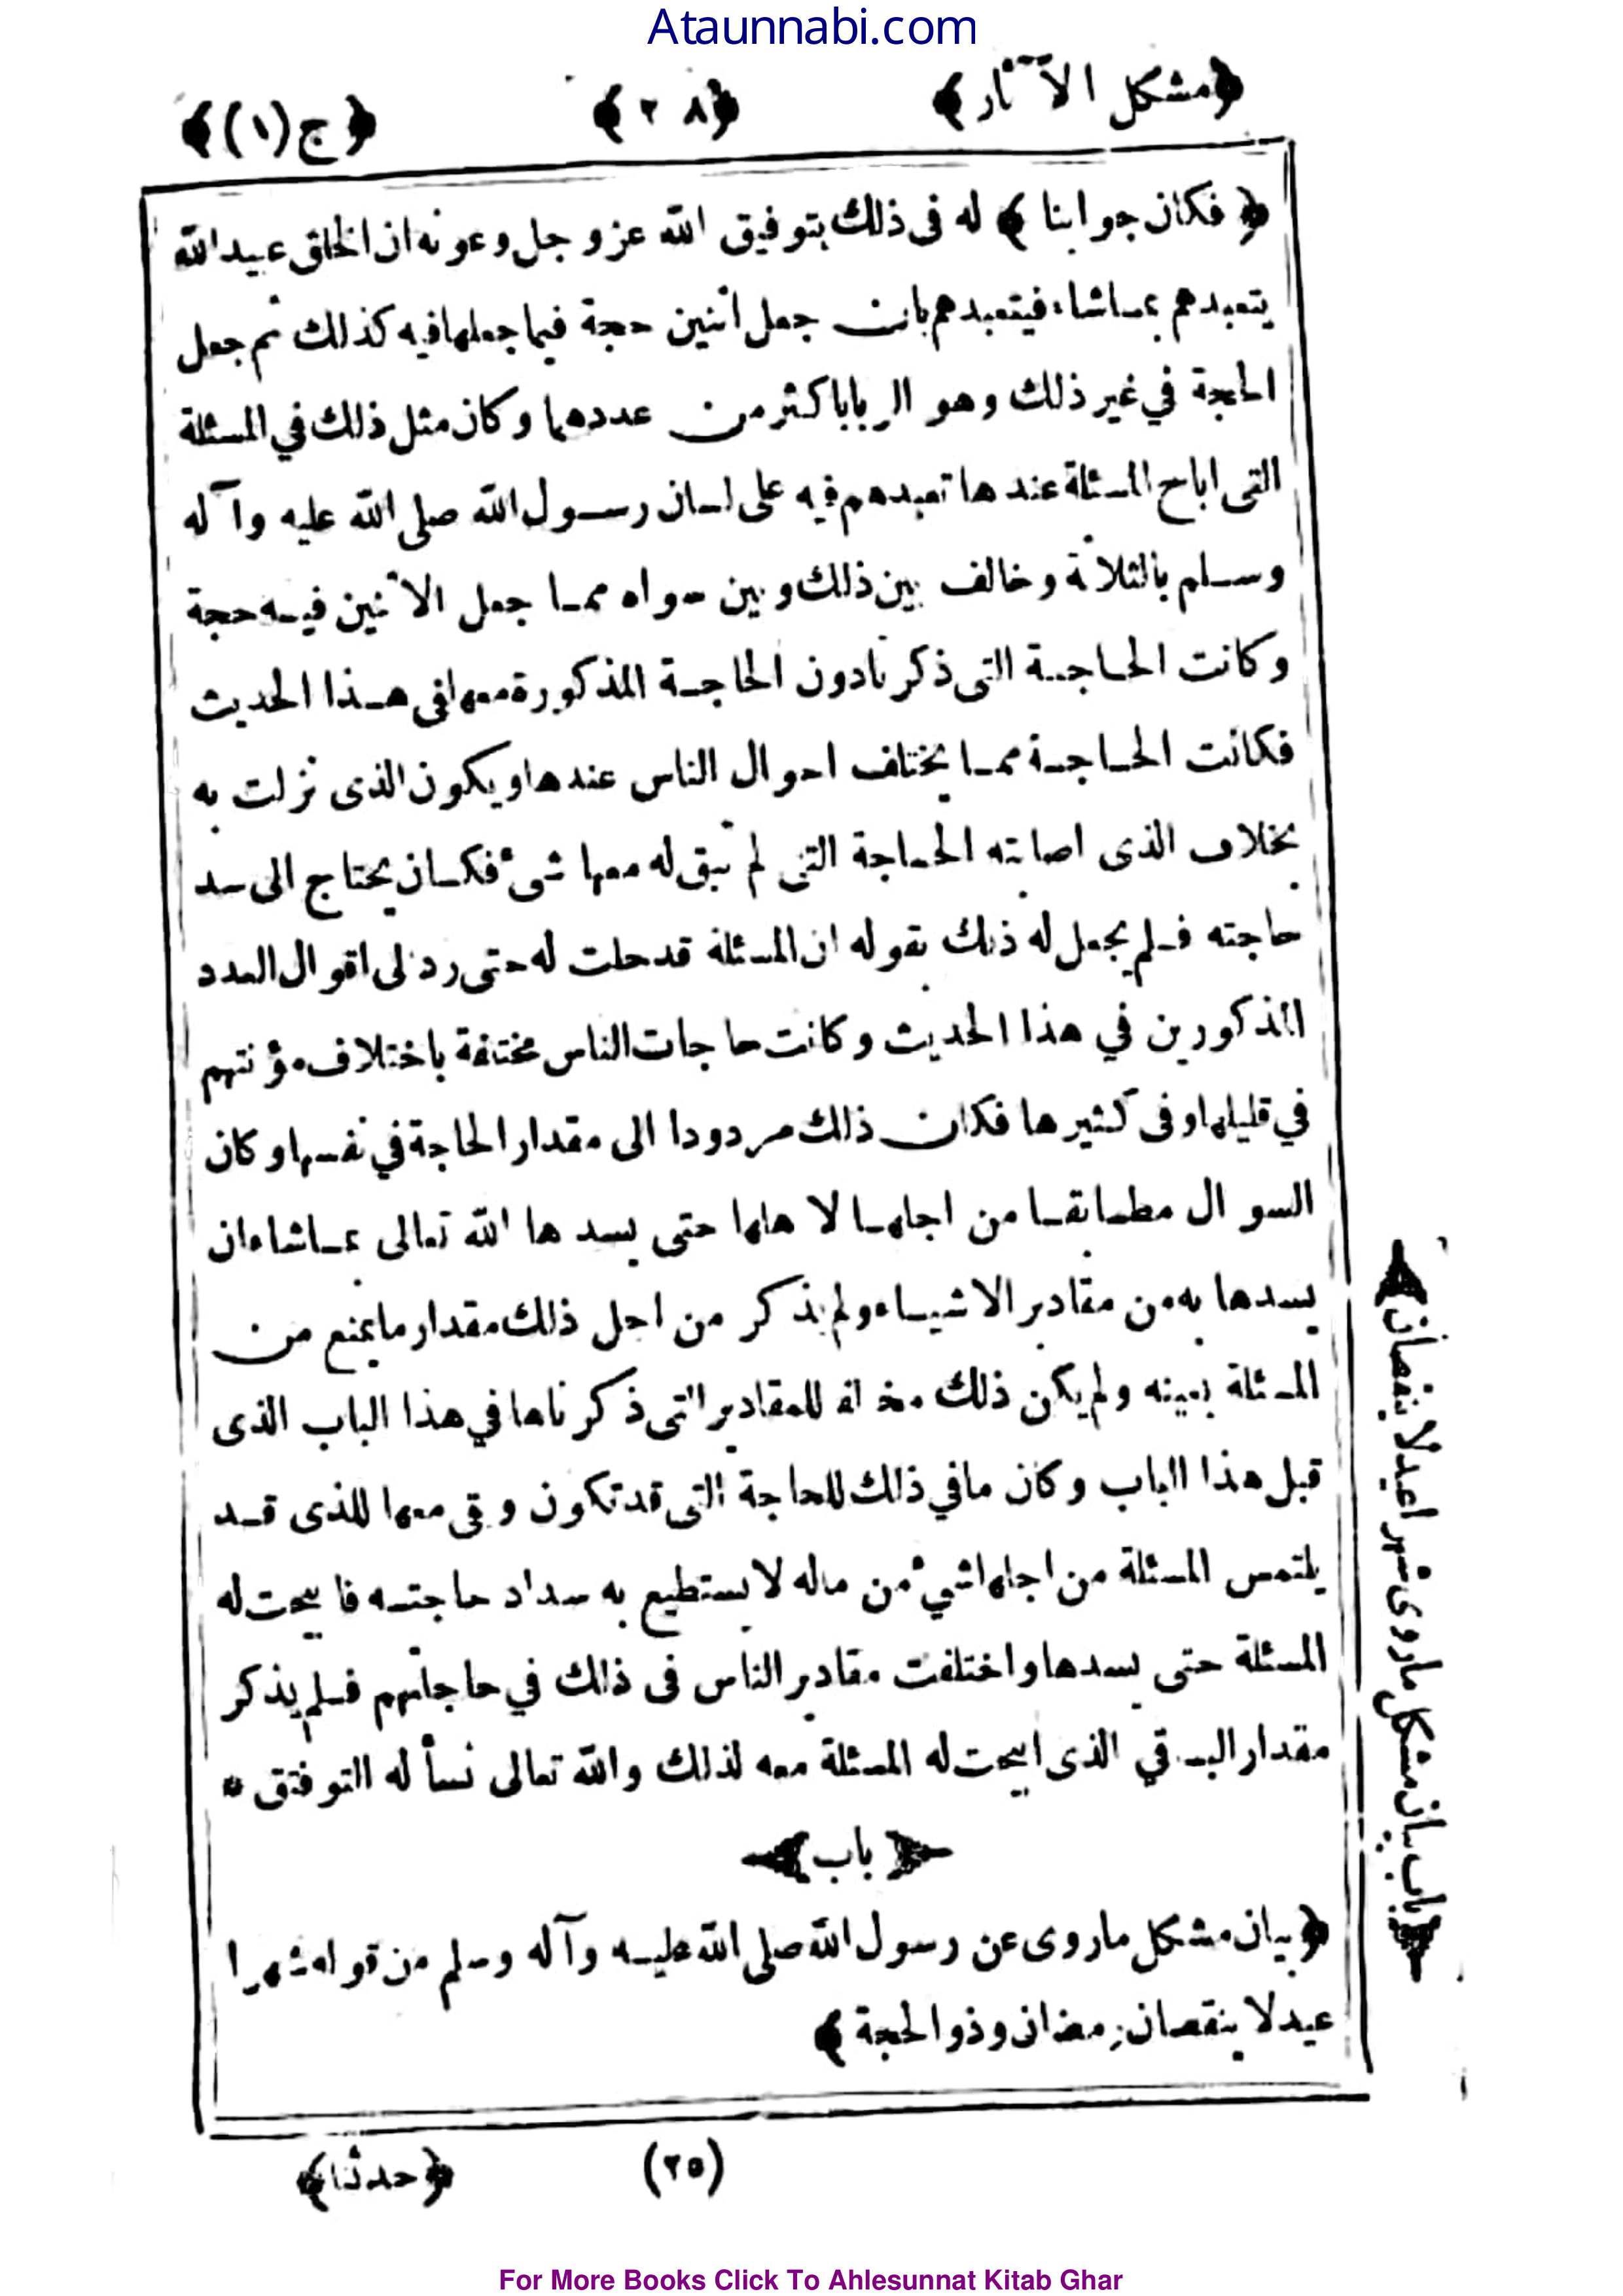 Ataunnabi.com
﴿مشكل الآثار﴾ ﴿٢٠٨﴾ ﴿ج(١)﴾
﴿ فكان جوابنا ﴾ له فى ذلك بتوفيق الله عز وجل وعونه ان الخلق عبيد الله
يتعبدهم بما شاء فيتعبدهم بان جعل اثنين حجة فيما جعلها فيه كذلك ثم جعل
الحجة في غير ذلك وهو الربا باكثر من عددهما وكان مثل ذلك في المسئلة
التى اباح المسئلة عندها تعبدهم فيه على لسان رسول الله صلى الله عليه وآله
وسلم بالثلاثة وخالف بين ذلك وبين سواه مما جعل الاثنين فيه حجة
وكانت الحاجة التى ذكرنا دون الحاجة المذكورة معها فى هذا الحديث
فكانت الحاجة مما يختلف احوال الناس عندها ويكون الذى نزلت به
بخلاف الذى اصابته الحاجة التى لم تبق له معها شئ فكان يحتاج الى سد
حاجته فلم يجعل له ذلك بقوله ان المسئلة قد حلت له حتى رد الى اقوال العدد
المذكورين في هذا الحديث وكانت حاجات الناس مختلفة باختلاف مؤنتهم
في قليلها وفى كثيرها فكان ذلك مردودا الى مقدار الحاجة في نفسها وكان
السوال مطابقا من اجلها لاهلها حتى يسدها الله تعالى بما شاء ان
يسدها به من مقادير الاشياء ولم يذكر من اجل ذلك مقدار ما يمنع من
المسئلة بعينه ولم يكن ذلك مخالفا للمقادير التى ذكرناها في هذا الباب الذى
قبل هذا الباب وكان ما في ذلك للحاجة التى قد تكون وبقى معها للذى قد
يلتمس المسئلة من اجلها شيء من ماله لا يستطيع به سداد حاجته فابيحت له
المسئلة حتى يسدها واختلفت مقادير الناس فى ذلك في حاجاتهم فلم يذكر
مقدار الباقي الذى ابيحت له المسئلة معه لذلك والله تعالى نسأله التوفيق *
﴿ باب ﴾
﴿ بيان مشكل ماروى عن رسول الله صلى الله عليه وآله وسلم من قوله شهرا
عيد لا ينقصان رمضان وذو الحجة ﴾
﴿باب بيان مشكل ماروى شهرا عيد لا ينقصان﴾
(٢٥) ﴿حدثنا﴾
For More Books Click To Ahlesunnat Kitab Ghar